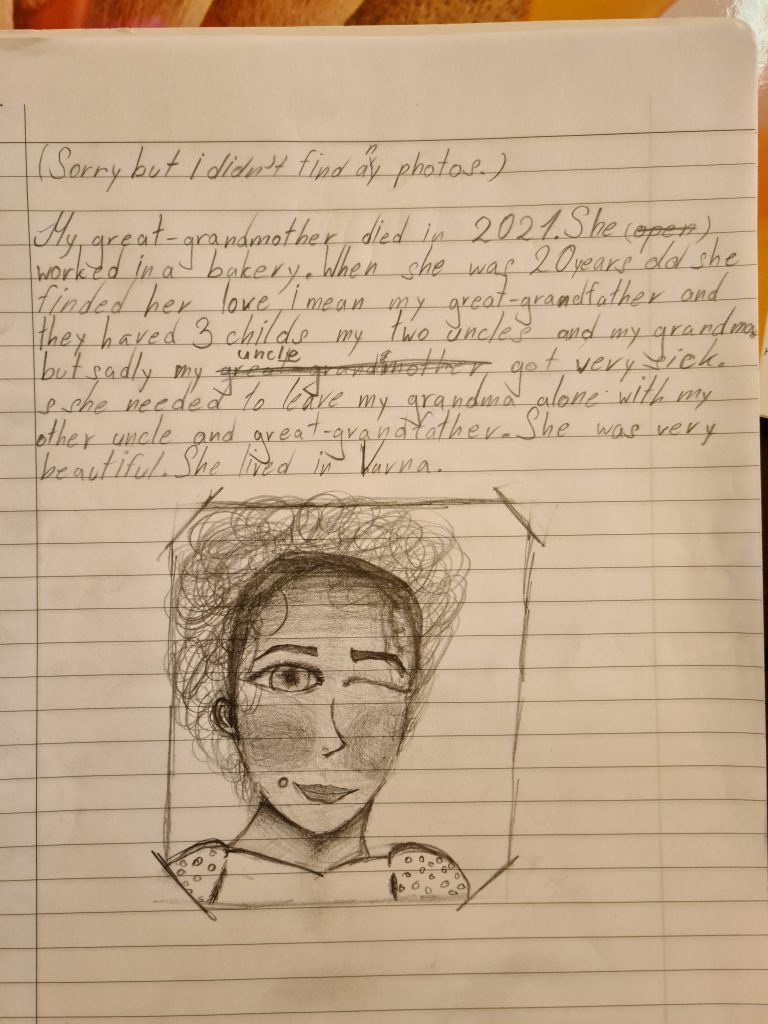 (Sorry but i didn't find any photos.)
My great-grandmother died in 2021. She (open)
worked in a bakery. When she was 20 years old she
finded her love i mean my great-grandfather and
they haved 3 childs my two uncles and my grandma
but sadly my great-grandmother uncle got very sick.
s she needed to leave my grandma alone with my
other uncle and great-grandfather. She was very
beautiful. She lived in Varna.